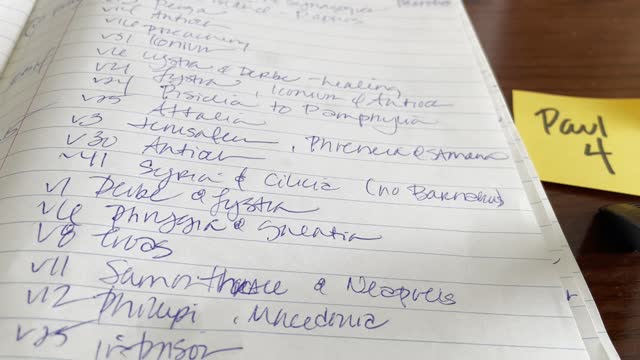 Perga
v14 Antioc
v16 preaching
v51 Iconium
v6 Lystra & Derbe - healing
v21 Lystra, Iconium & Antioc
v24 Pisidia to Pamphylia
v25 Attalia
v3 Jerusalem, Phrenecia & Samaria
v30 Antioc
v41 Syria & Cilicia (no Barnabus)
v1 Derbe & Lystra
v6 Phrygia & Galatia
v8 Troas
v11 Samorthrace & Neapolis
v12 Philippi, Macedonia
v25 in prison
Paul
4